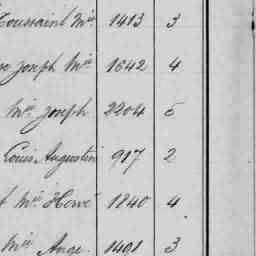 Toussaint Mie 1413 3
Joseph Mie 1642 4
Mie Joseph 2204 5
Louis Augustin 917 2
Mie Hervé 1840 4
Mie Ange. 1491 3